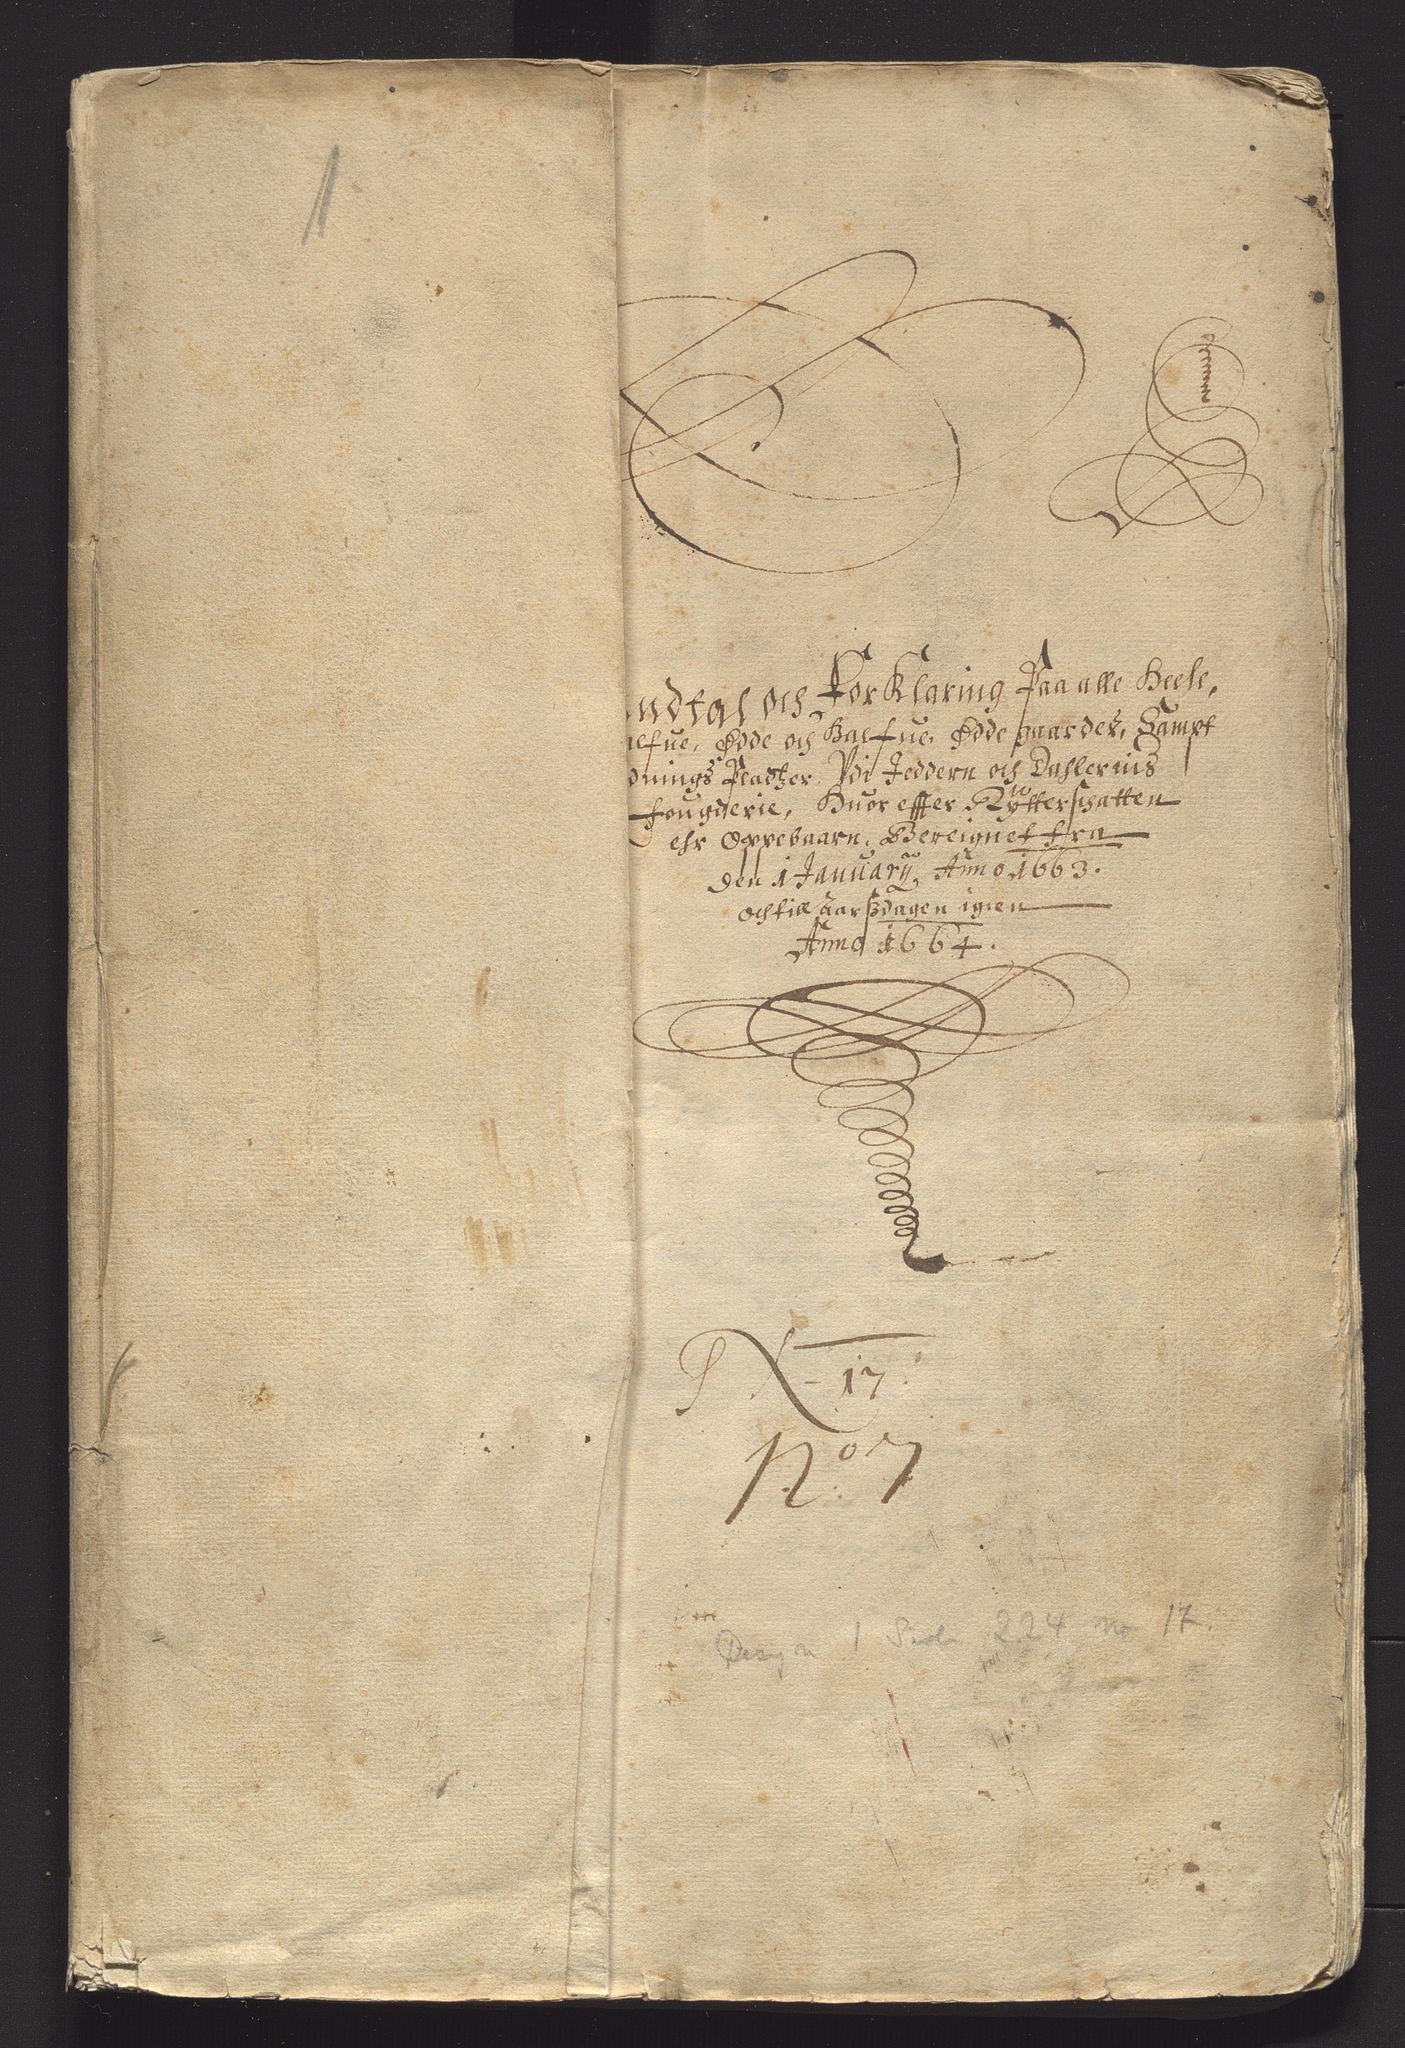 1
ndtal och Forklaring Paa alle Heele,
alfue, Øde och Halfue Øde gaarder, Sampt
dnings Pladtzer Vdi Jeddern och Dahlernis
fougderie, Huor effter Rytterschatten
ehr Oppebaarn, Bereignet fra
den 1 January Anno 1663.
och till Aarsdagen igien
Anno 1664.
17
No 7
1 224 No 17.